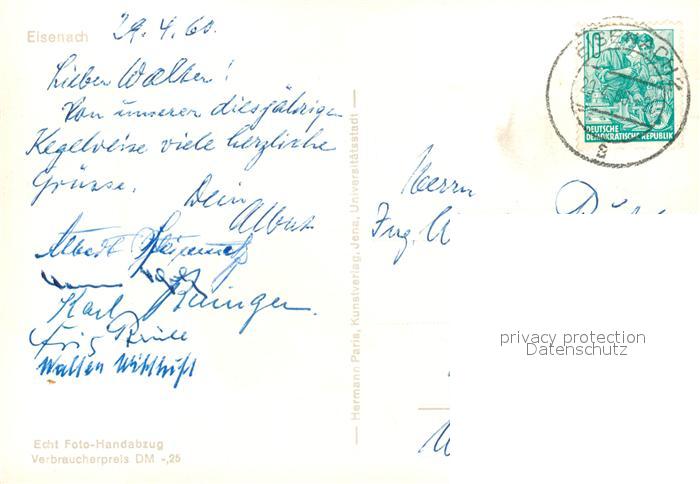 Eisenach
29.4.60.
Lieber Walter!
Von unserer diesjährigen
Kegelreise viele herzliche
Grüsse.
Dein
Albert
Albert
Karl
Fritz
Walter
Echt Foto-Handabzug
Verbraucherpreis DM -,25
Hermann Paris, Kunstverlag, Jena, Universitätsstadt
10
DEUTSCHE
DEMOKRATISCHE REPUBLIK
EISENACH
Herrn
Ing.
privacy protection
Datenschutz